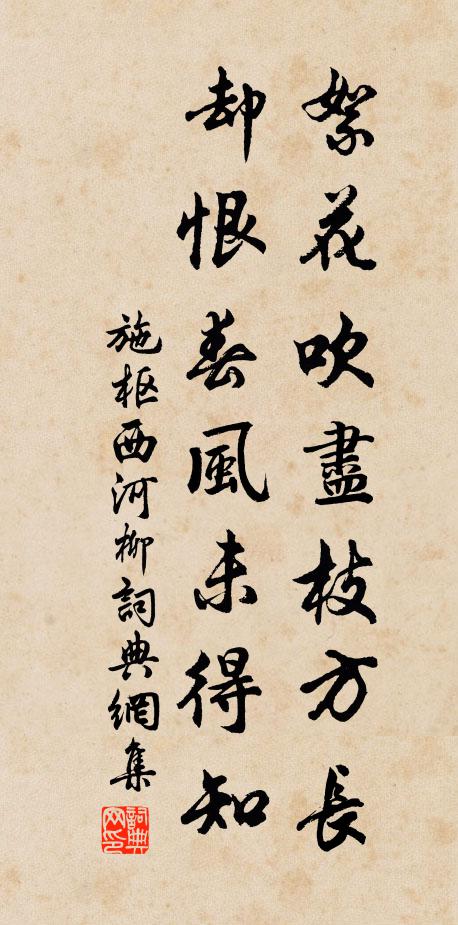 絮花吹盡枝方長
却恨春風未得知
施枢西河柳詞典網集
詞典網印